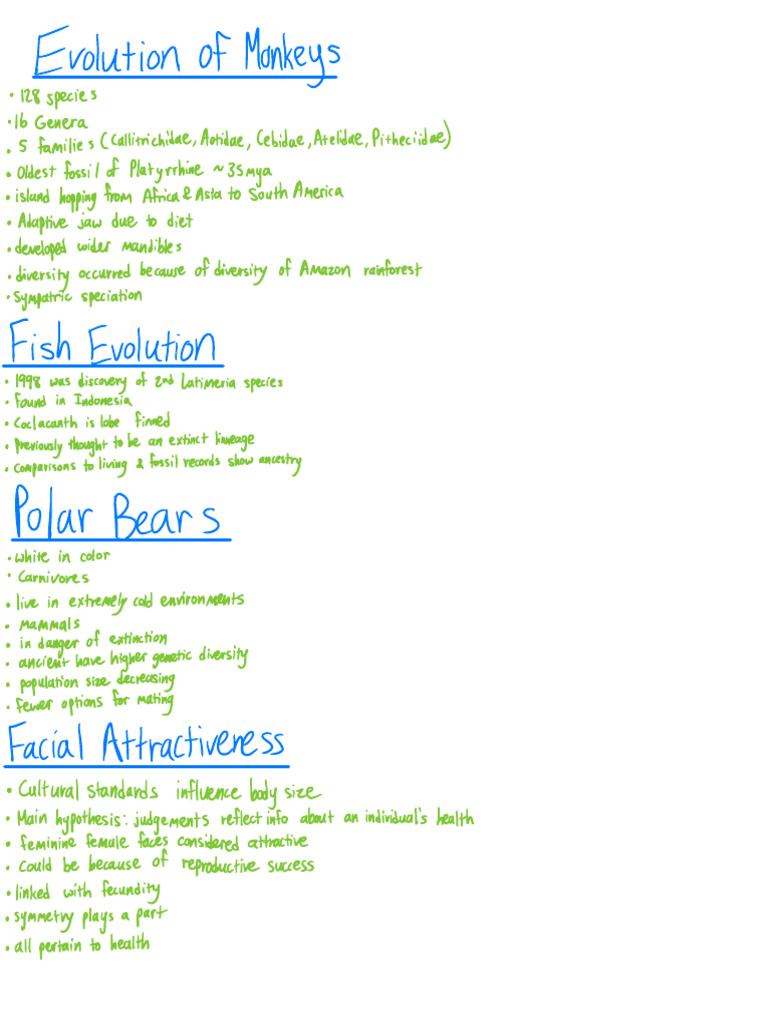 Evolution of Monkeys
• 128 species
• 16 Genera
• 5 families (Callitrichidae, Aotidae, Cebidae, Atelidae, Pitheciidae)
• Oldest fossil of Platyrrhine ~35mya
• island hopping from Africa & Asia to South America
• Adaptive jaw due to diet
• developed wider mandibles
• diversity occurred because of diversity of Amazon rainforest
• Sympatric speciation
Fish Evolution
• 1998 was discovery of 2nd Latimeria species
• Found in Indonesia
• Coelacanth is lobe finned
• Previously thought to be an extinct lineage
• Comparisons to living & fossil records show ancestry
Polar Bears
• White in color
• Carnivores
• live in extremely cold environments
• Mammals
• in danger of extinction
• ancient have higher genetic diversity
• population size decreasing
• fewer options for mating
Facial Attractiveness
• Cultural standards influence body size
• Main hypothesis: judgements reflect info about an individual's health
• feminine female faces considered attractive
• Could be because of reproductive success
• linked with fecundity
• symmetry plays a part
• all pertain to health